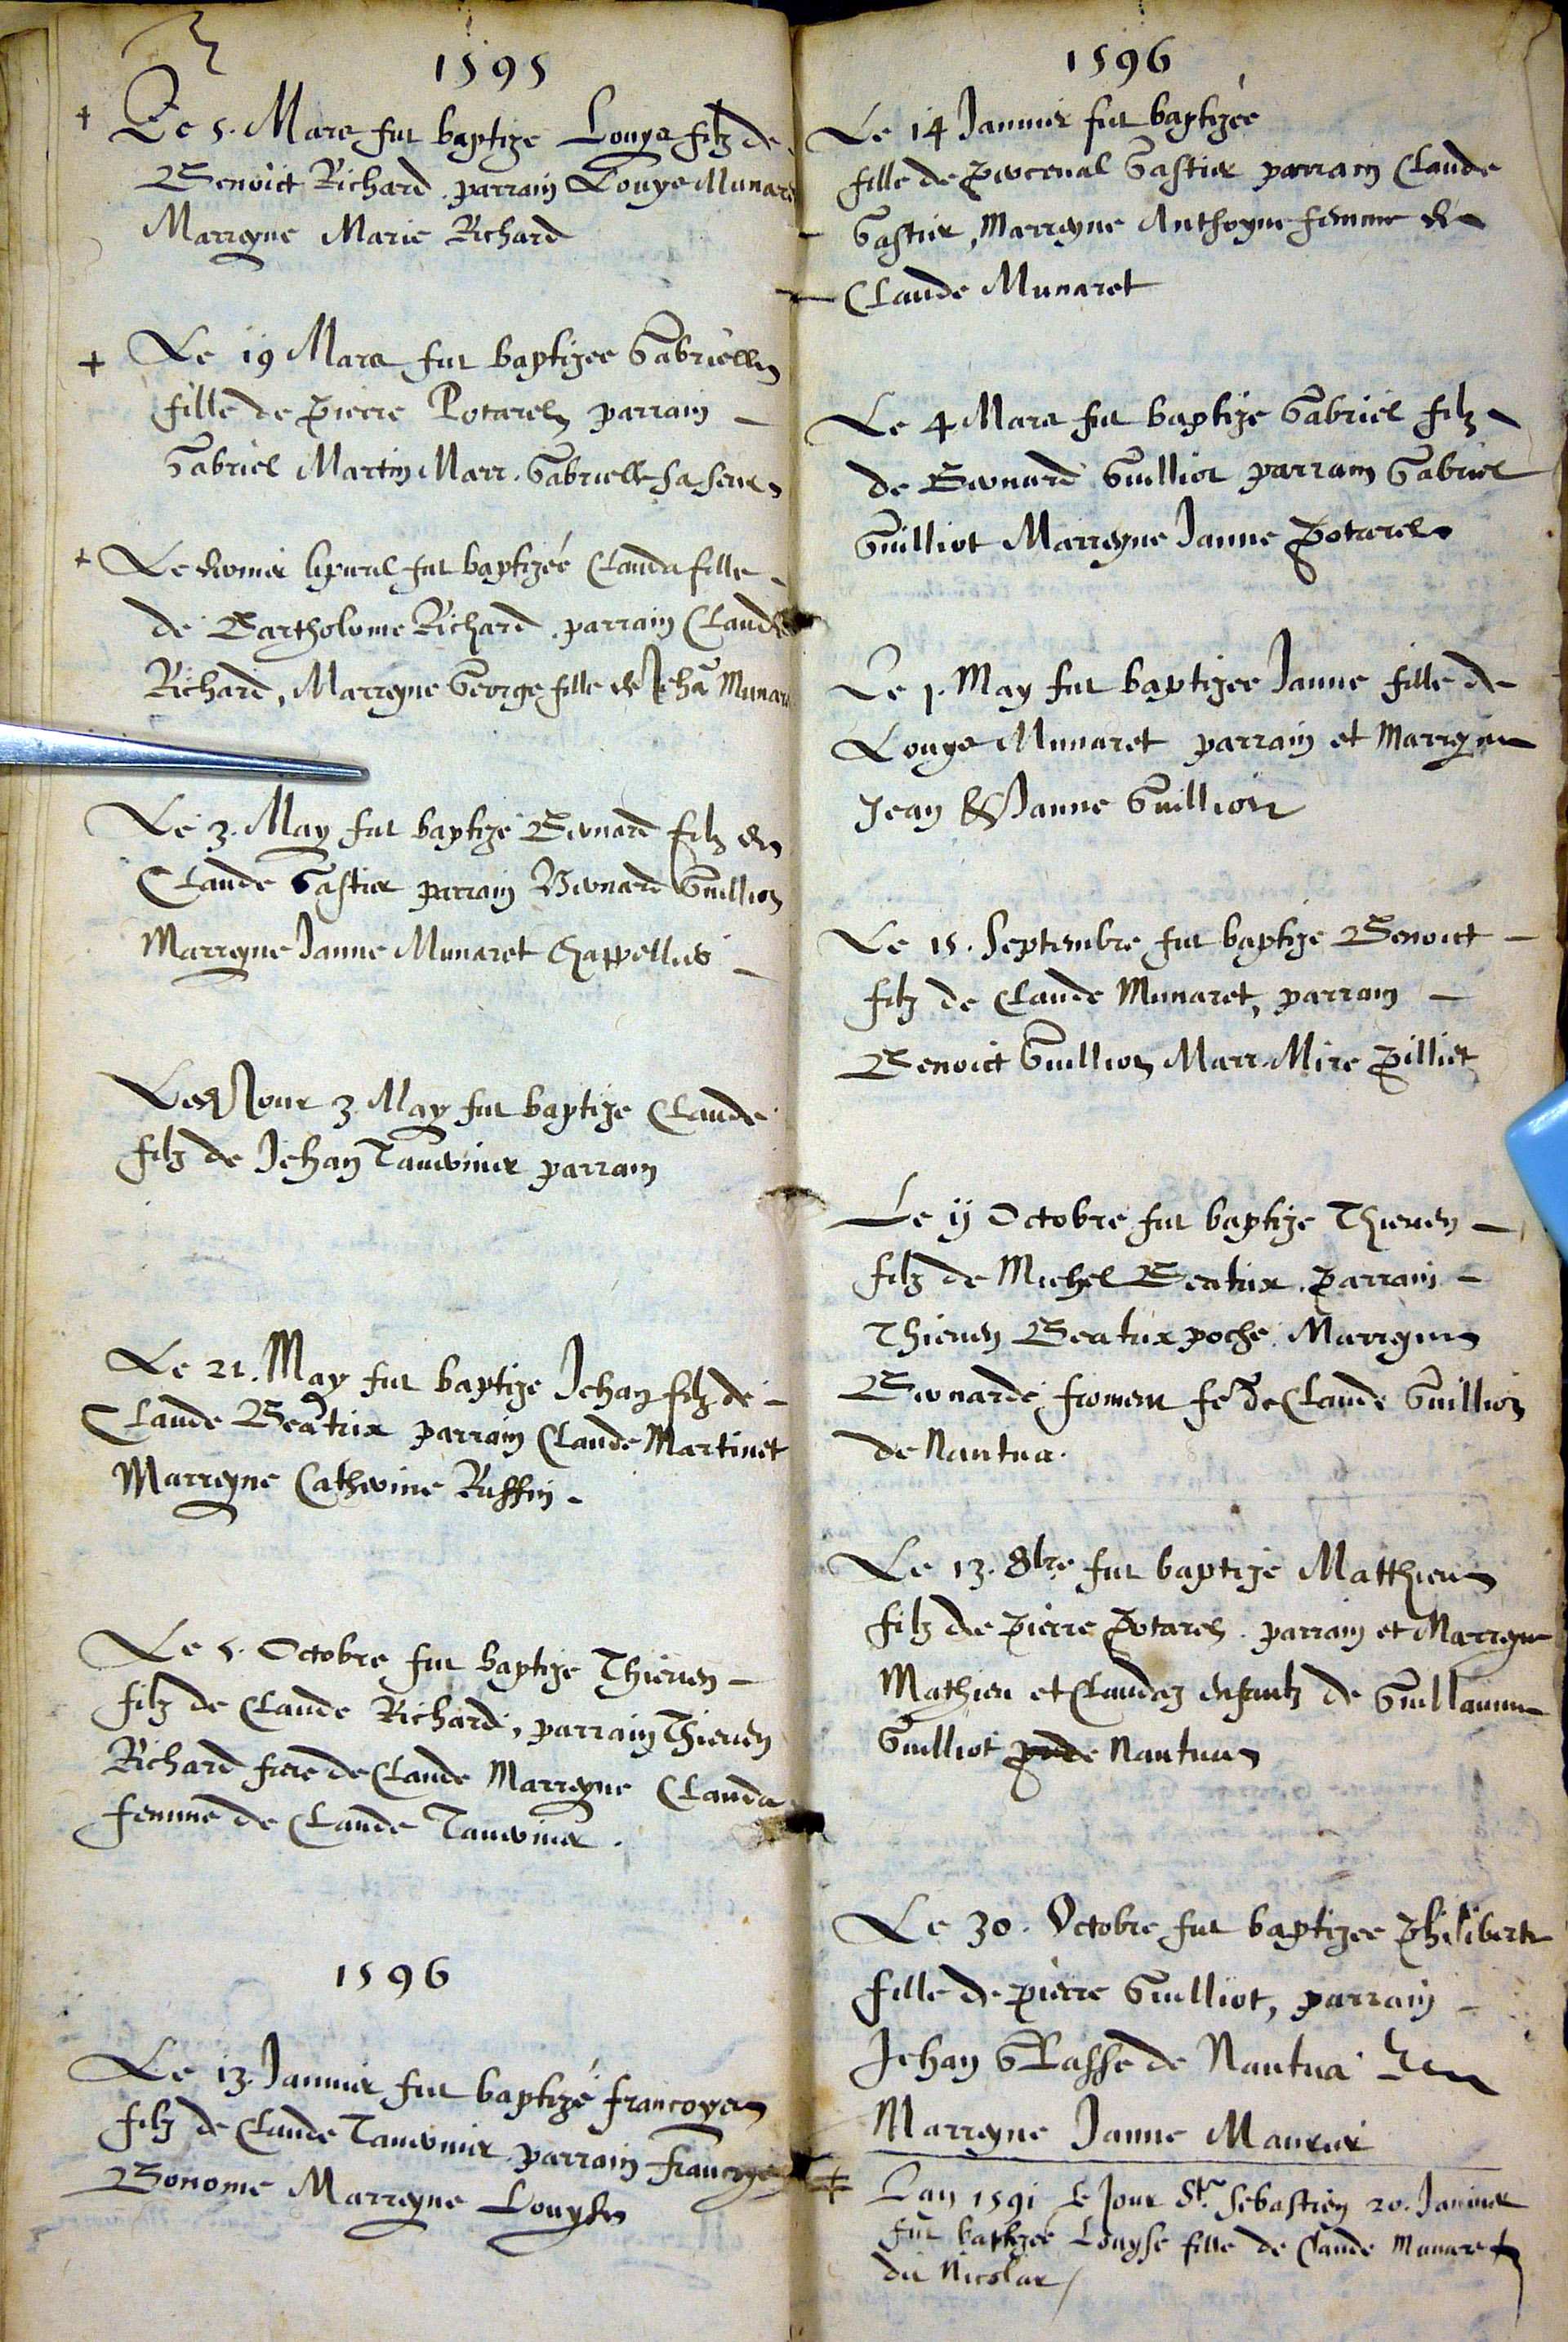 1595
Le 5. Mars fut baptize Louys filz de
Benoict Richard. parrain Louys Munaret
Marreyne Marie Richard
Le 19 Mars fut baptizee Gabrielle
fille de Pierre Potarel parrain
Gabriel Martin Marr. Gabrielle sa seur
Le dernier fut baptizée Clauda fille
de Bartholome Richard. parrain Claude
Richard, Marreyne George fille de Jehã Munaret
Le 3. May fut baptizé Bernard filz de
Claude Gastier parrain Bernard Guilliot
Marreyne Janne Munaret
Jour 3 May fut baptize Claude
filz de Jehan Tavernier parrain
Le 21. May fut baptize Jehan filz de
Claude Beatrix parrain Claude Martinet
Marreyne Catherine Ruffin
Le 5. Octobre fut baptize Thieven
filz de Claude Richard, parrain Thieven
Richard frere de Claude Marreyne Clauda
femme de Claude Tavernier.
1596
Le 13. Janvier fut baptizé francoys
filz de Claude Tavernier parrain francoys
Bonome Marreyne Louyse
1596
Le 14 Janvier fut baptizée
fille de Perceval Gastier parrain Claude
Gastier, Marreyne Anthoyne femme de
Claude Munaret
Le 4 Mars fut baptize Gabriel filz
de Bernard Guilliot parrain Gabriel
Guilliot Marreyne Janne Potarel
Le 1. May fut baptizee Janne fille de
Louys Munaret parrain et Marreyne
Jean & Janne Guilliot
Le 15. Septembre fut baptize Benoict
filz de Claude Munaret, parrain
Benoict Guilliot Marr. Mire Pilliet
Le ij Octobre fut baptize Thieven
filz de Michel Beatrix. parrain
Thieven Beatrix poche. Marreyne
Bernarde froment fe de Claude Guilliot
de Nantua.
Le 13. 8bre fut baptize Matthieu
filz de Pierre Potarel. parrain et Marreyne
Mathieu et Claudaz enfantz de Guillaume
Guilliot de Nantua
Le 30. Octobre fut baptizee Philiberte
fille de pierre Guilliot, parrain
Jehan Grasse de Nantua
Marreyne Janne Maurier
Lan 1591 le Jour St. Sebastien 20. Janvier
fut baptizee Louyse fille de Claude Munaret
du Nicolar